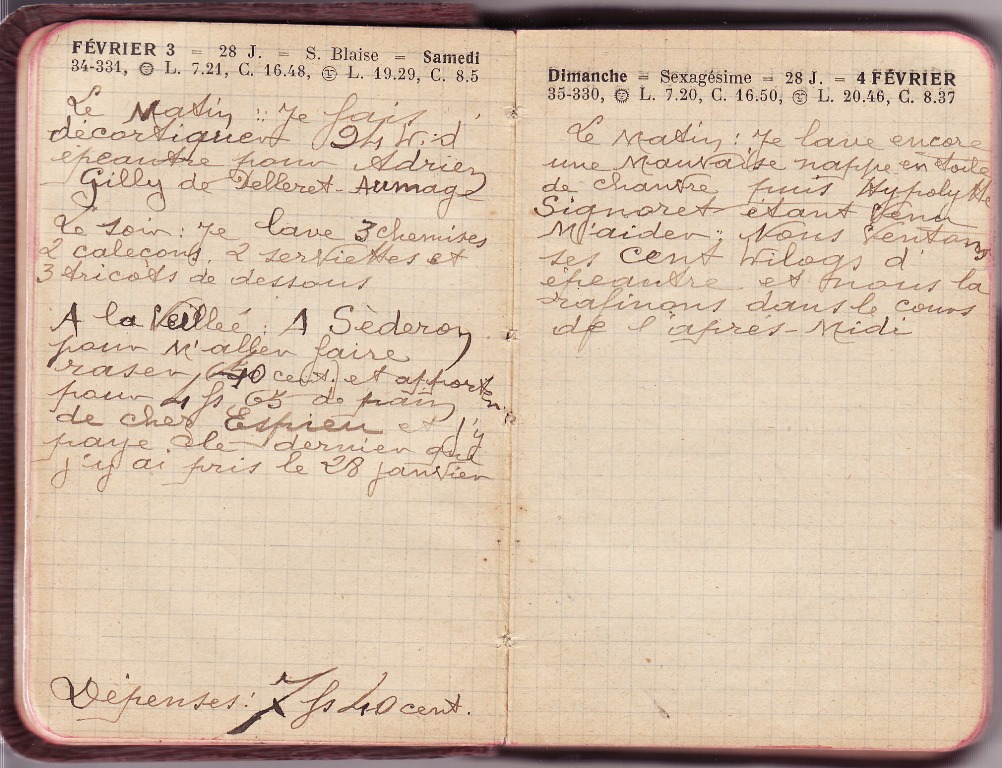 FÉVRIER 3 = 28 J. = S. Blaise = Samedi
34-331, L. 7.21, C. 16.48, L. 19.29, C. 8.5
Le Matin : Je fais
décortiquer 94 K. d
épeautre pour Adrien
Gilly de Pelleret-Aumage
Le soir : Je lave 3 chemises
2 caleçons. 2 serviettes et
3 tricots de dessous
A la Veilleé : A Sèderon
pour M'aller faire
raser (40 cent) et apporter
pour 4 fs 65 de pain
de chez Espieu et j'y
paye le dernier que
j'y ai pris le 28 janvier
Dépenses : 7 fs 40 cent.
Dimanche = Sexagésime = 28 J. = 4 FÉVRIER
35-330, L. 7.20, C. 16.50, L. 20.46, C. 8.37
Le Matin : Je lave encore
une Mauvaise nappe en toile
de chanvre puis Hypolytte
Signoret étant Venu
M'aider ; Nous Ventons
ses cent kilogs d'
épeautre et nous la
rafinons dans le cours
de l'après-Midi